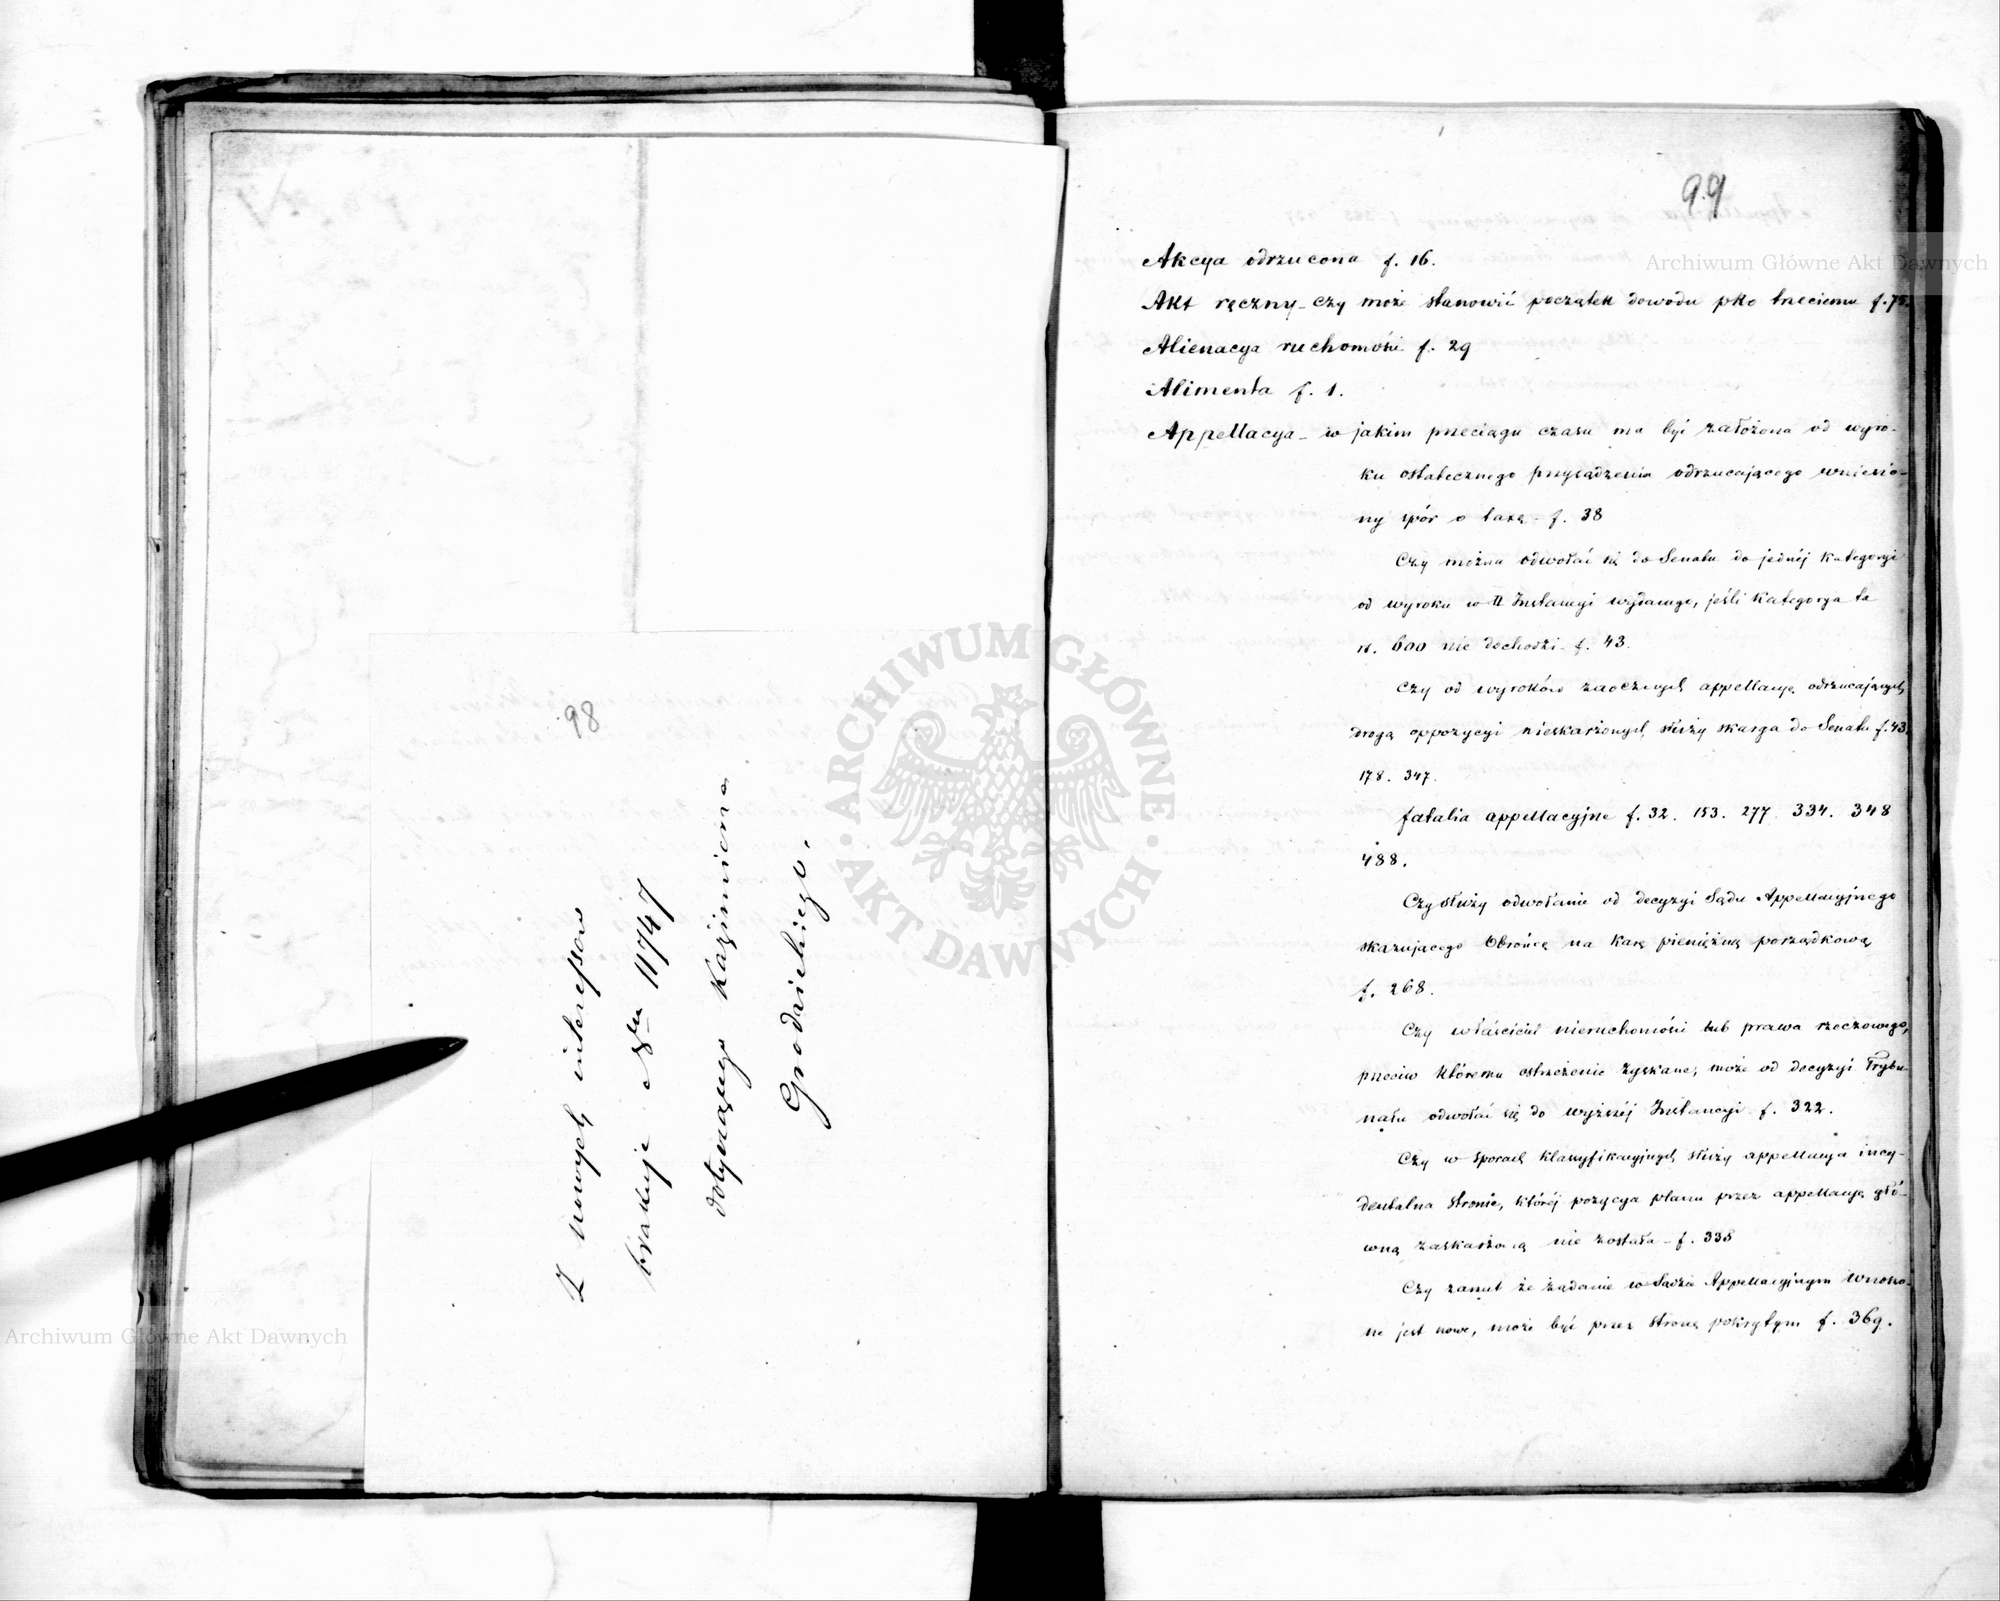 98
Z nowych interessów
brakuje Nru 11747
dotyczącego Kazimierza
Grodzickiego.
99
Akcya odrzucona f. 16.
Akt ręczny - czy może stanowić początek dowodu pko trzeciemu f. 75.
Alienacya ruchomości f. 29
Alimenta f. 1.
Appellacya - w jakim przeciągu czasu ma być założona od wyro-
ku ostatecznego przysądzenia odrzucającego wniesio-
ny spór o taxę - f. 38
Czy można odwołać się do Senatu do jednéj Kategoryi
od wyroku w II Instancyi wydanego, jeśli Kategorya ta
rs. 600 nie dochodzi - f. 43.
Czy od wyroków zaocznych appellacyę odrzucających,
drogą oppozycyi nieskarżonych, służy skarga do Senatu f. 43.
178. 347.
fatalia appellacyjne f. 32. 153. 277. 334. 348
488.
Czy służy odwołanie od decyzyi Sądu Appellacyjnego
skazującego Obrońcę na karę pieniężną porządkową
f. 268.
Czy właściciel nieruchomości lub prawa rzeczowego,
przeciw któremu ostrzeżenie zyskane, może od decyzyi Trybu-
nału odwołać się do wyższéj Instancyi f. 322.
Czy w sporach klassyfikacyjnych służy appellacya incy-
dentalna stronie, któréj pozycya planu przez appellacyę głó-
wną zaskarżoną nie została - f. 338
Czy zarzut że żądanie w Sądzie Appellacyjnym wnoszo-
ne jest nowe, może być przez stronę pokrytym f. 369.
Archiwum Główne Akt Dawnych
Archiwum Główne Akt Dawnych
ARCHIWUM GŁÓWNE
AKT DAWNYCH